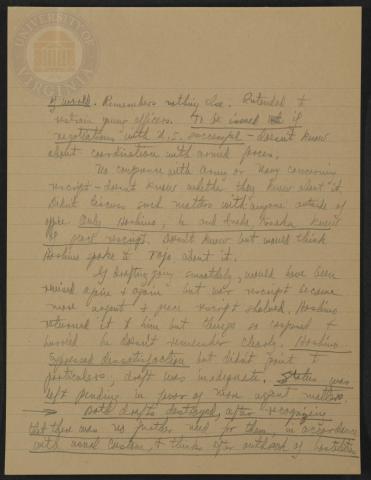 UNIVERSITY OF VIRGINIA
of world. Remembers nothing else. Intended to
restrain young officers. To be issued if
negotiations with U.S. successful - doesn't know
about coordination with armed forces.
No conference with Army or Navy concerning
rescript - doesn't know whether they knew about it.
Didn't discuss such matters with anyone outside of
office. Only Hoshino, he and Inada, knew
of peace rescript. Doesn't know but would think
Hoshino spoke to Tojo about it.
If drafting going smoothly, would have been
revised again & again but war rescript became
more urgent & peace rescript shelved. Hoshino
returned it to him but things so confused &
hurried he doesn't remember clearly. Hoshino
expressed dissatisfaction but didn't point to
particulars; draft was inadequate. Status was
left pending in favor of more urgent matters.
Both drafts destroyed, after recognizing
that there was no further need for them, in accordance
with usual custom, & thinks after outbreak of hostilities